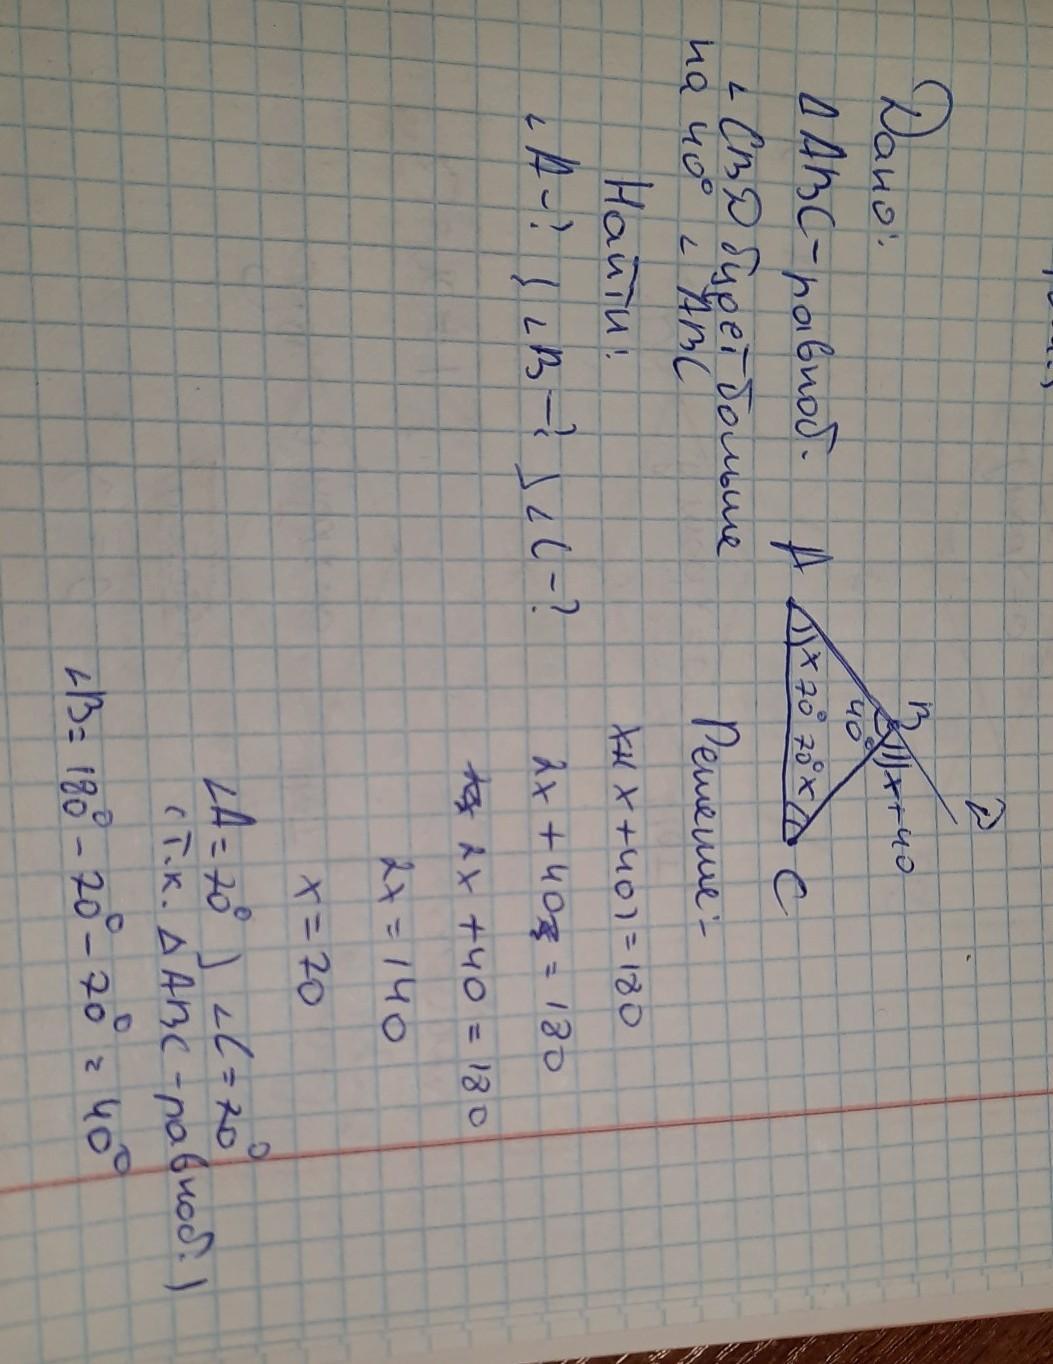 Дано:
Δ ABC - равноб.
∠ CBD будет больше
на 40° ∠ ABC
Найти:
∠A-? ; ∠B-? ; ∠C-?
A
B
D
C
x 70° 70° x
40°
x+40
Решение:
x+(x+40)=180
2x+40=180
2x+40=180
2x=140
x=70
∠A=70° ; ∠C=70°
(т.к. Δ ABC - равноб.)
∠B= 180° - 70° - 70° = 40°